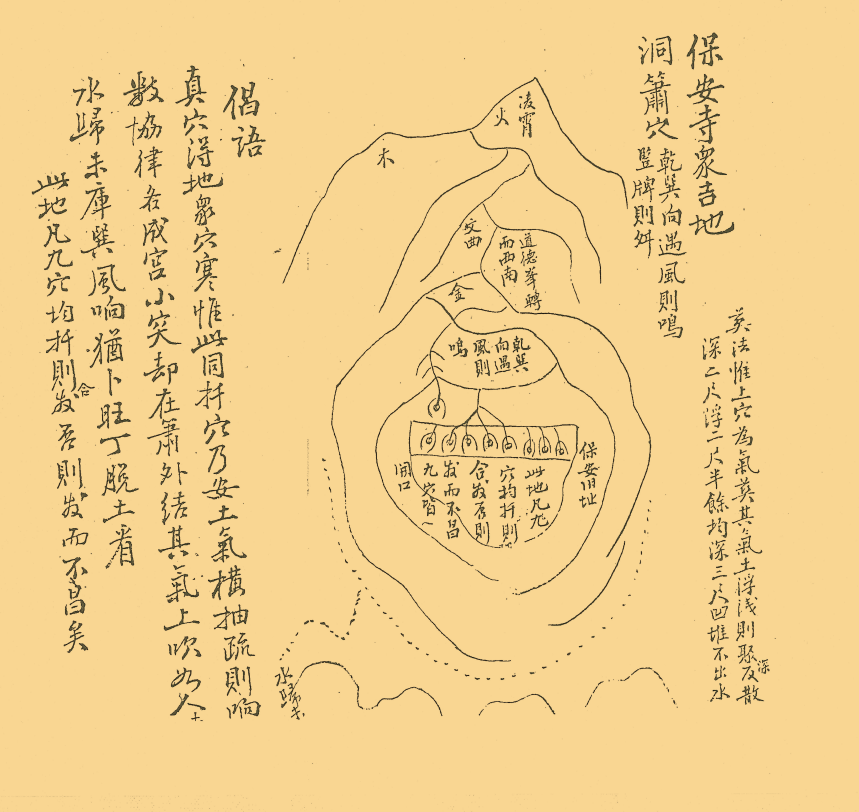 保安寺眾吉地
洞簫穴
乾巽向遇風則鳴
監牌則舛
葬法惟上穴為氣葬其氣土浮浅則聚
深
反散
深二尺浮二尺半餘均深三尺凹堆不出水
凌霄
火
木
文曲
道德峯轉
而西南
金
乾巽
向遇
風則
鳴
保安旧址
此地凡九
穴均扦則
合发否則
发而不昌
九穴皆一
開口
水歸未
倡語
真穴得地眾穴寒惟此同扦穴乃安土氣橫抽疏則响
數協律各成宮小突却在簫外結其氣上吹如人
水歸未庫巽風响猶卜旺丁脫土看
此地凡九穴均扦則
合
发否則发而不昌矣